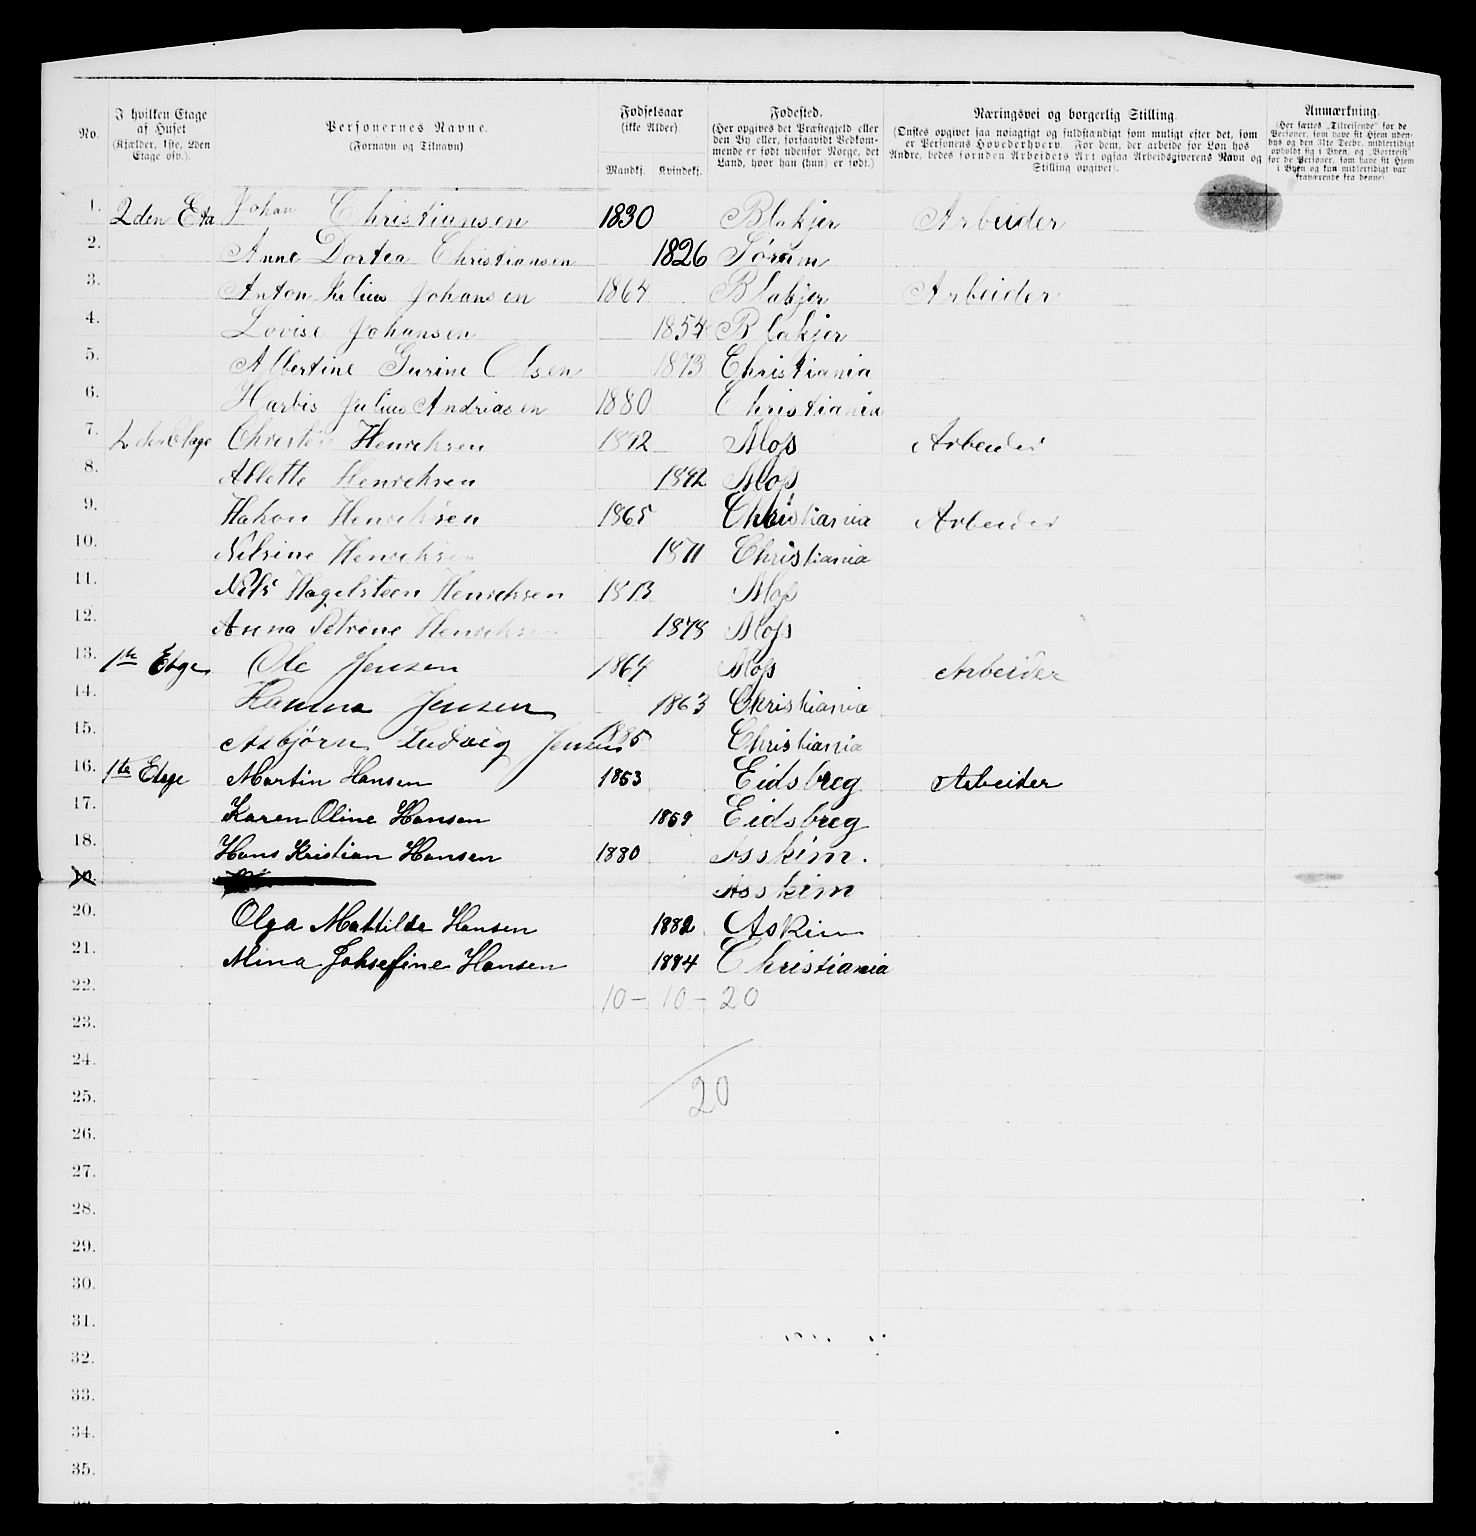 No.
I hvilken Etage af Huset (Kjælder, 1ste, 2den Etage osv.).
Personernes Navne. (Fornavn og Tilnavn)
Fødselsaar (ikke Alder). Mandkj. Kvindekj.
Fødested. (Her opgives det Præstegjeld eller den By eller, forsaavidt Vedkommende er født udenfor Norge, det Land, hvor han (hun) er født.)
Næringsvei og borgerlig Stilling. (Ønskes opgivet saa nøiagtigt og fuldstændigt som muligt efter det, som er Personens Hovederhverv. For dem, der arbeide for Løn hos Andre, bedes foruden Arbeidets Art ogsaa Arbeidsgiverens Navn og Stilling opgivet).
Anmærkning. (Her sættes „Tilreisende“ for de Personer, som have sit Hjem udenbys og den 31te Decbr. midlertidigt opholdt sig i Byen, og „Bortreist“ for de Personer, som have sit Hjem i Byen og kun midlertidigt var fraværende fra denne)
1. 2den Eta Johan Christiansen 1830 Blakjer Arbeider
2. Anne Dortea Christiansen 1826 Sørum
3. Anton Julius Johansen 1864 Blakjer Arbeider
4. Lovise Johansen 1854 Blakjer
5. Albertine Gurine Olsen 1873 Christiania
6. Julius Andriasen 1880 Christiania
7. 2den Etage Henrichsen Moss Arbeider
8. Henrichsen Moss
9. Hakon Henrichsen 1865 Christiania Arbeider
10. Henrichsen 1871 Christiania
11. Nils Hagelsteen Henrichsen 1873 Moss
12. Anna Petrine Henrichsen 1878 Moss
13. 1te Etge Ole Jensen 1864 Moss Arbeider
14. Hanna Jensen 1863 Christiania
15. Asbjørn Ludvig Jensen 1885 Christiania
16. 1te Etage Martin Hansen 1853 Eidsbreg Arbeider
17. Karen Oline Hansen 1859 Eidsbreg
18. Hans Kristian Hansen 1880 Asskim.
19. Asskim
20. Olga Mattilde Hansen 1882 Askim
21. Mina Johsefine Hansen 1884 Christiania
22. 10 - 10 - 20
23.
24.
25. 20
26.
27.
28.
29.
30.
31.
32.
33.
34.
35.